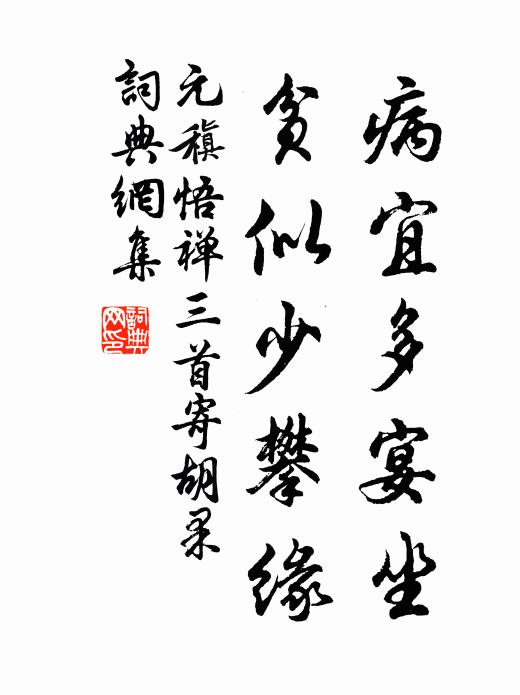 病宜多宴坐
貧似少攀緣
元稹悟禅三首寄胡果
詞典網集
詞典網印